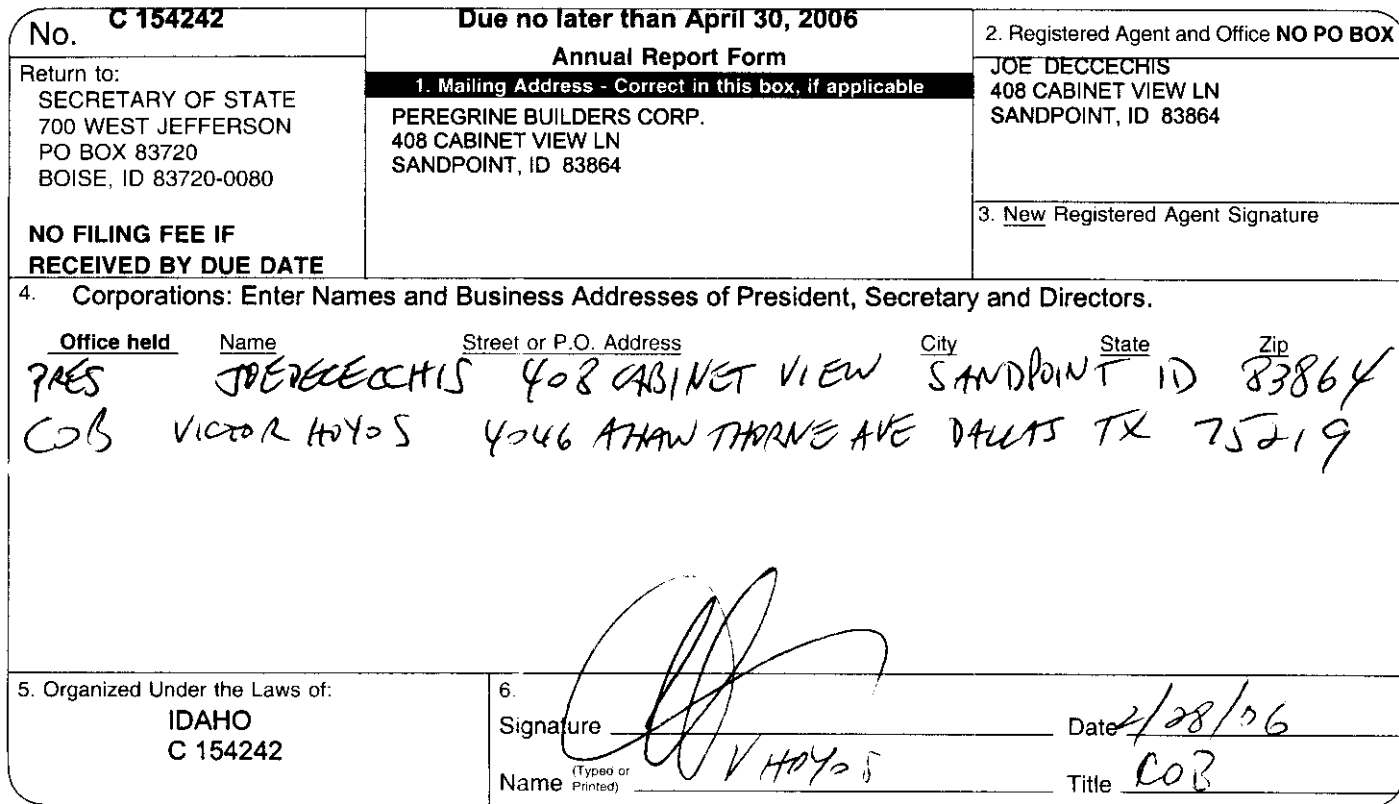 No. C 154242
Return to:
SECRETARY OF STATE
700 WEST JEFFERSON
PO BOX 83720
BOISE, ID 83720-0080
NO FILING FEE IF
RECEIVED BY DUE DATE
Due no later than April 30, 2006
Annual Report Form
1. Mailing Address - Correct in this box, if applicable
PEREGRINE BUILDERS CORP.
408 CABINET VIEW LN
SANDPOINT, ID 83864
2. Registered Agent and Office NO PO BOX
JOE DECCECHIS
408 CABINET VIEW LN
SANDPOINT, ID 83864
3. New Registered Agent Signature
4. Corporations: Enter Names and Business Addresses of President, Secretary and Directors.
Office held Name Street or P.O. Address City State Zip
PRES JOE 408 CABINET VIEW SANDPOINT ID 83864
COB VICTOR HOYOS 4046 THORNE AVE DALLAS TX 75219
5. Organized Under the Laws of:
IDAHO
C 154242
6.
Signature
Date 2/28/06
Name (Typed or Printed) V HOYOS
Title COB